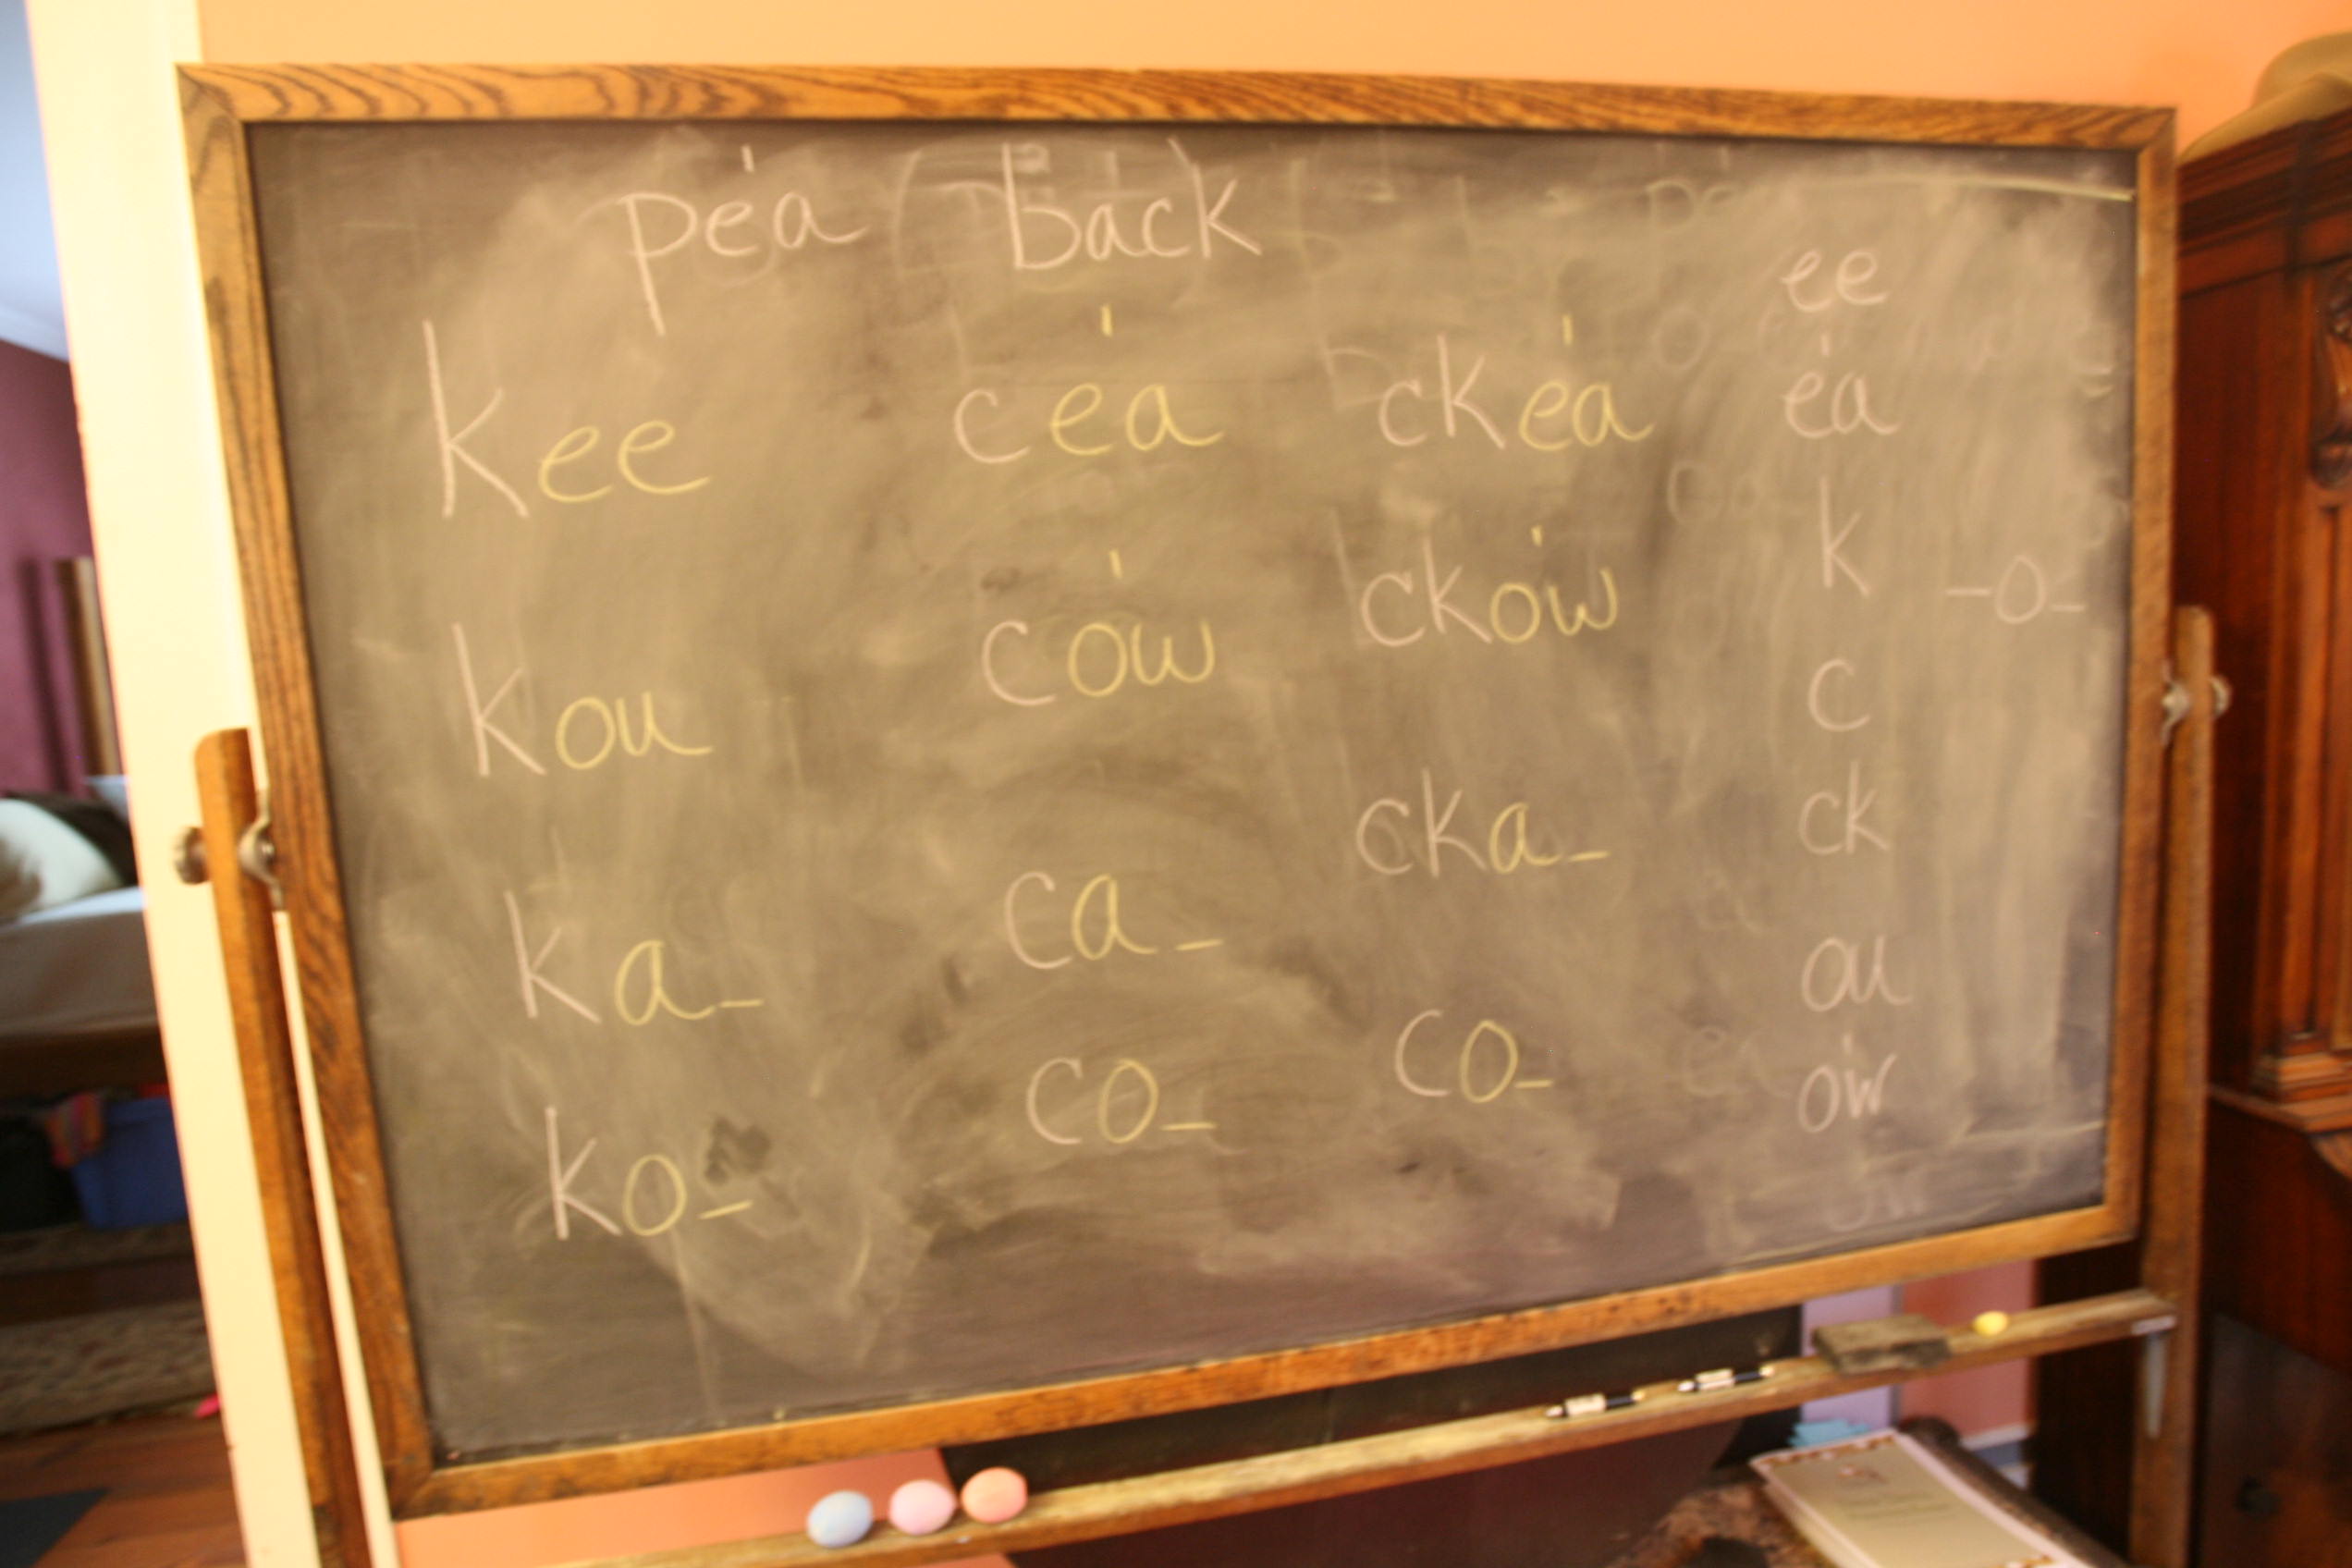 pea back
kee cea ckea
kou cow ckow
ka_ ca_ cka_
ko_ co_ co_
ee
ea
k -o-
c
ck
ou
ow